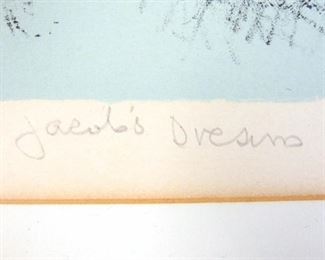 Jacob's Dream